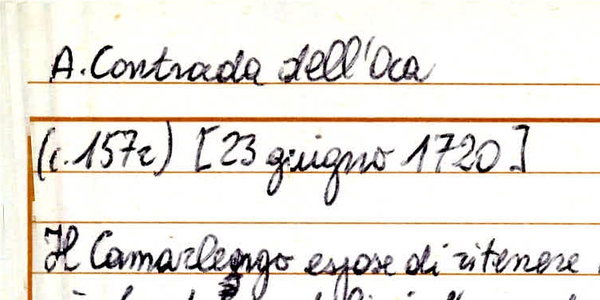 A. Contrada dell'Oca
(c. 157r) [23 giugno 1720]
Il Camarlengo espose di ritenere